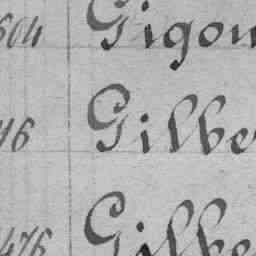 604 Gigou
16 Gilbe
476 Gilbe